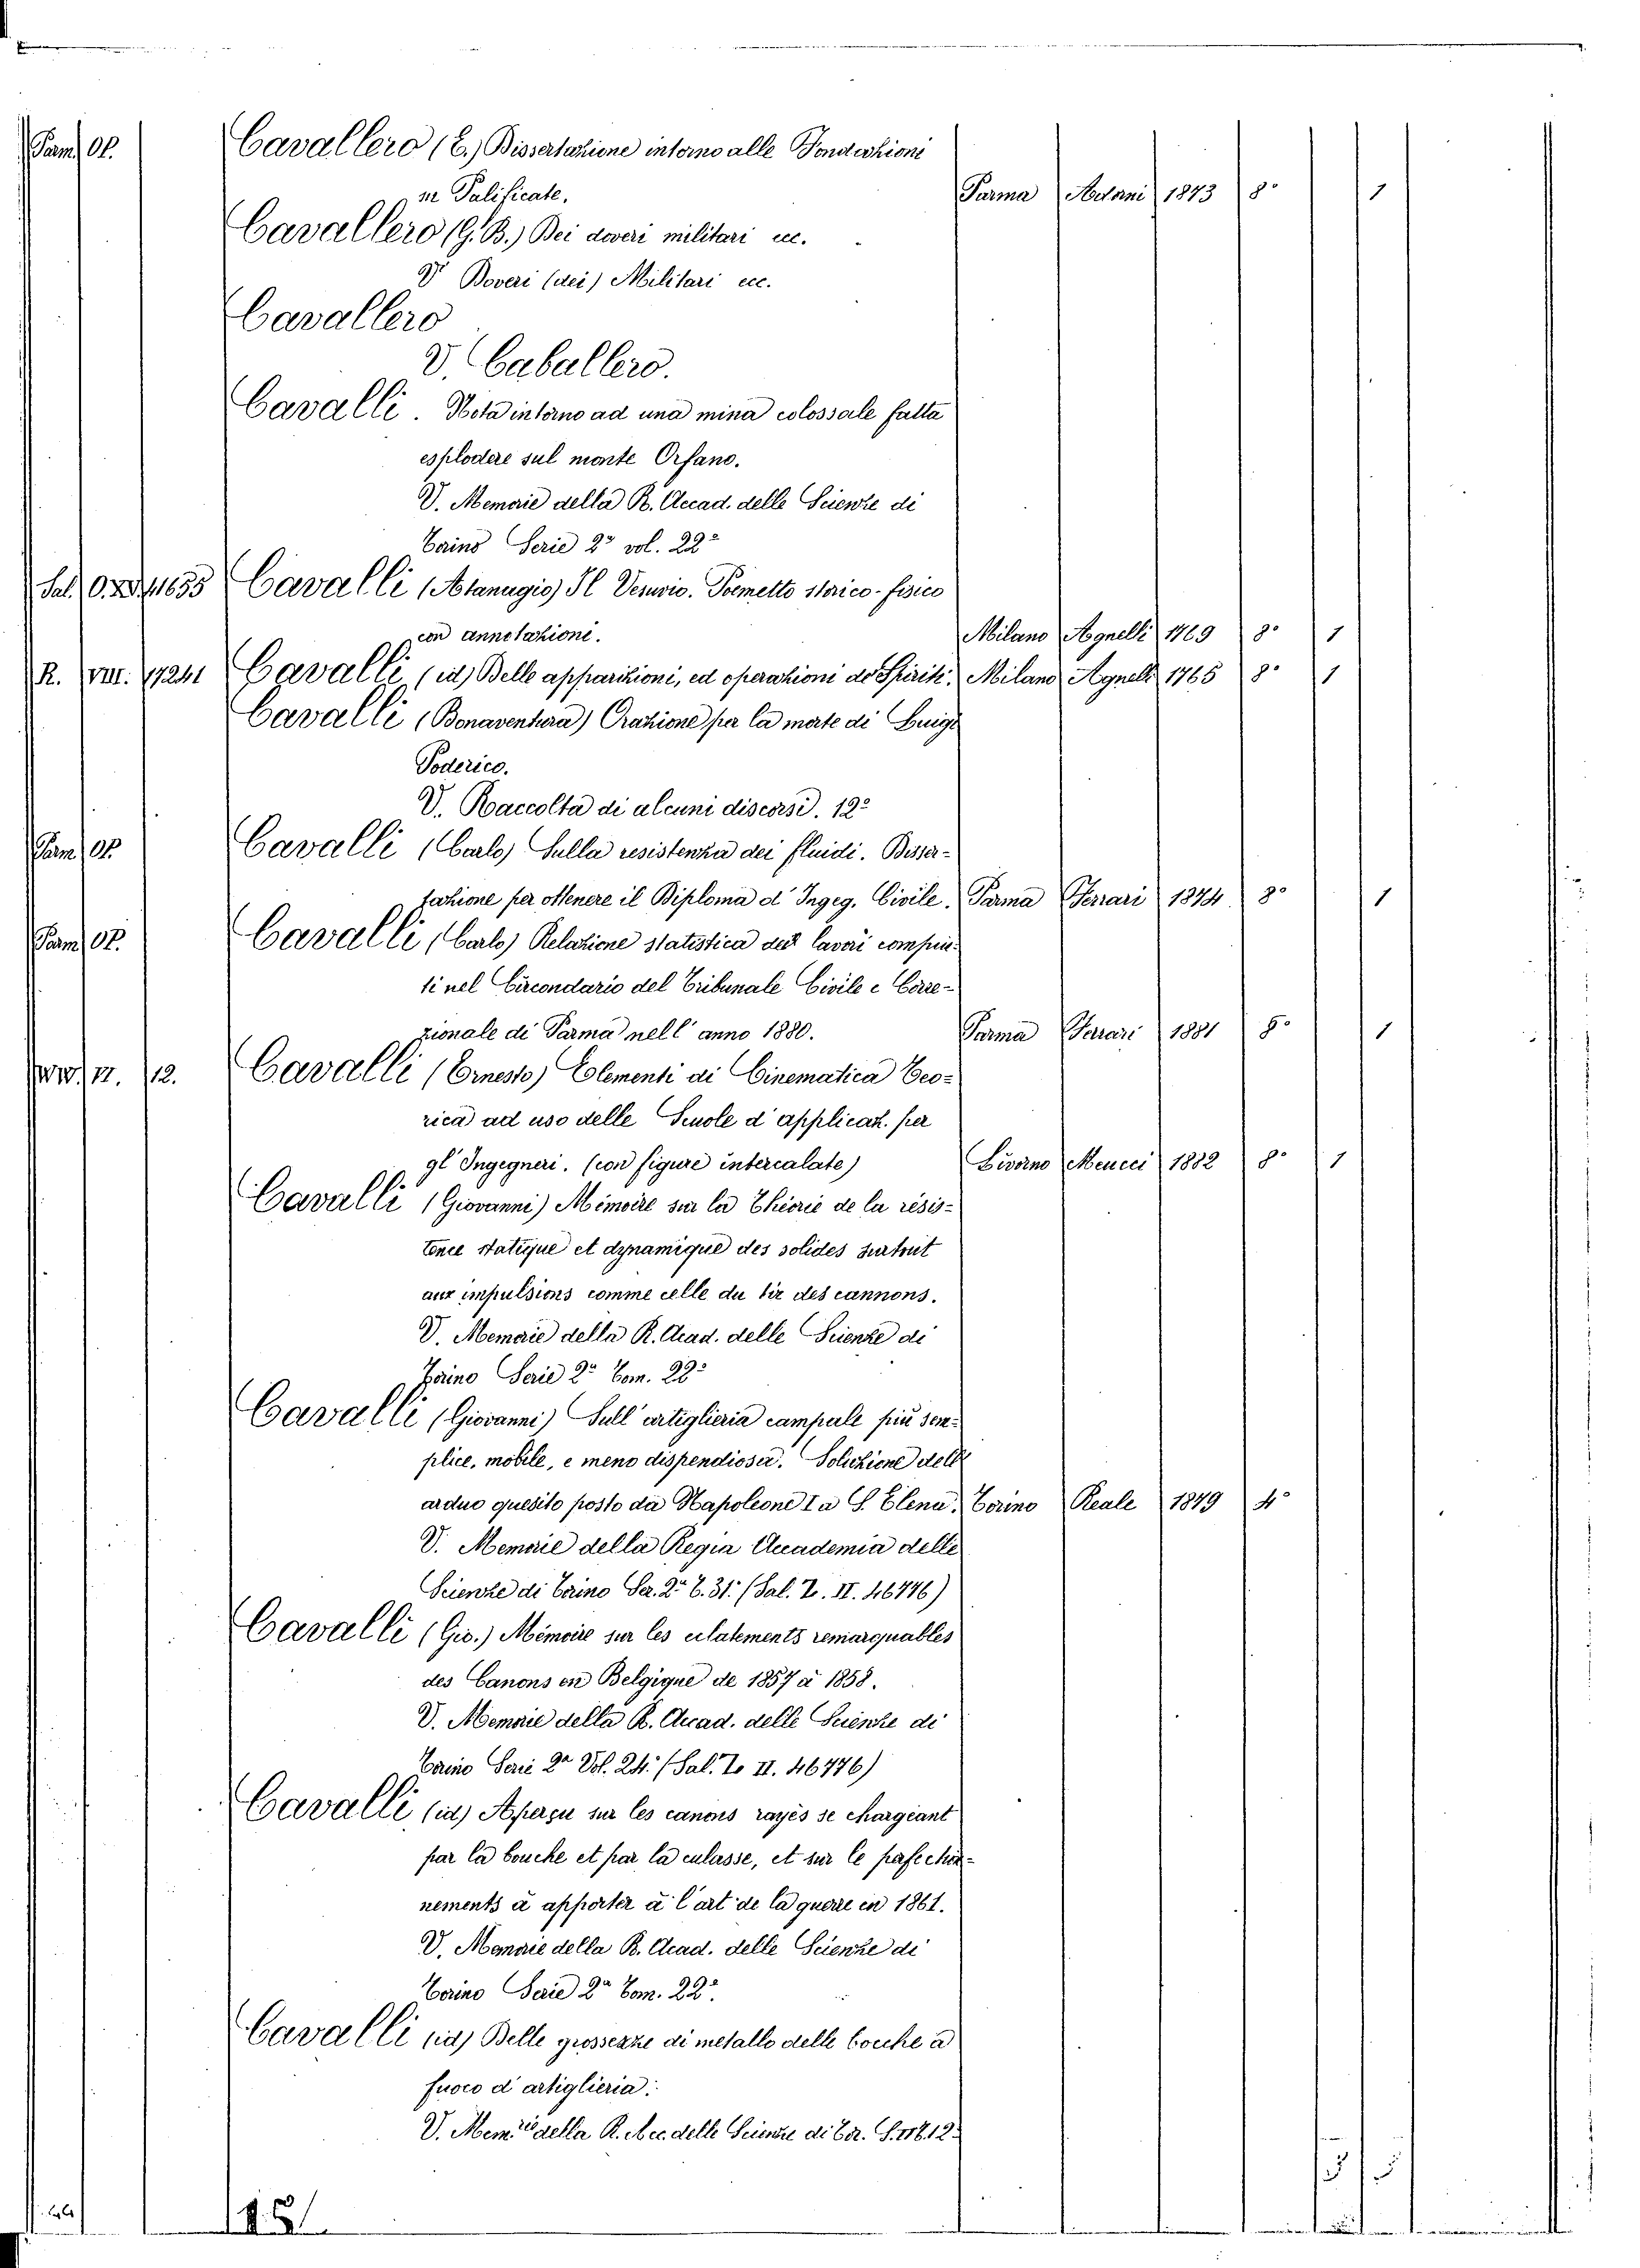 Parm. Op. Cavallero (E.) Dissertazione intorno alle Fondazioni
in Palificate. Parma Adani 1873 8° 1
Cavallero (G. B.) Dei doveri militari ecc.
V. Doveri (dei) Militari ecc.
Cavallero
V. Caballero.
Cavalli. Nota intorno ad una mina colossale fatta
esplodere sul monte Orfano.
V. Memorie della R. Accad. delle Scienze di
Torino Serie 2ª vol. 22°
Sal. 41655 Cavalli (Atanagio) Il Vesuvio. Poemetto storico-fisico
con annotazioni. Milano Agnelli 1769 8° 1
R. VIII. 17241 Cavalli (id) Delle apparizioni, ed operazioni de Spiriti. Milano Agnelli 1765 8° 1
Cavalli (Bonaventura) Orazione per la morte di Luigi
Poderico.
V. Raccolta di alcuni discorsi. 12°
Parm. Op. Cavalli (Carlo) Sulla resistenza dei fluidi. Disser-
tazione per ottenere il Diploma d' Ingeg. Civile. Parma Ferrari 1874 8° 1
Parm. Op. Cavalli (Carlo) Relazione statistica dei lavori compiu-
ti nel Circondario del Tribunale Civile e Corre-
zionale di Parma nell' anno 1880. Parma Ferrari 1881 8° 1
12. Cavalli (Ernesto) Elementi di Cinematica Teo-
rica ad uso delle Scuole d' applicaz. per
gl' Ingegneri. (con figure intercalate) Livorno Meucci 1882 8° 1
Cavalli (Giovanni) Mémoire sur la Théorie de la résis-
tence statique et dynamique des solides surtout
aux impulsions comme celle du tir des cannons.
V. Memorie della R. Acad. delle Scienze di
Torino Serie 2ª Tom. 22°
Cavalli (Giovanni) Sull' artiglieria campale più sem-
plice, mobile, e meno dispendiosa. Soluzione dell'
arduo quesito posto da Napoleone I a S. Elena. Torino Reale 1849 4°
V. Memorie della Regia Accademia delle
Scienze di Torino Ser. 2ª T. 31. (Sal. Z. II. 46776)
Cavalli (Gio.) Mémoire sur les eclatements remarquables
des Canons en Belgique de 1857 à 1858.
V. Memorie della R. Accad. delle Scienze di
Torino Serie 2ª Vol. 24. (Sal. Z. II. 46776)
Cavalli (id) Aperçu sur les canons rayés se chargeant
par la bouche et par la culasse, et sur le perfection-
nements à apporter à l' art de la guerre en 1861.
V. Memorie della R. Acad. delle Scienze di
Torino Serie 2ª Tom. 22°.
Cavalli (id) Delle grossezze di metallo delle bocche a
fuoco d' artiglieria.
V. Mem.rie della R. Acc. delle Scienze di Tor. S. II T. 12.
5 5